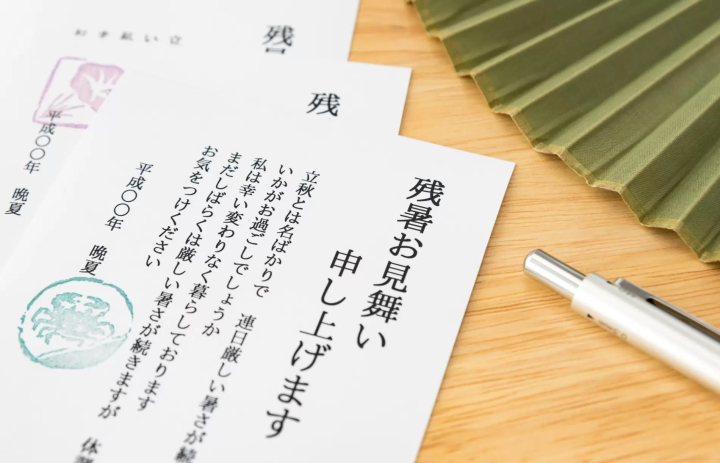 残暑お見舞い
申し上げます
立秋とは名ばかりで 連日厳しい暑さが続
いかがお過ごしでしょうか
私は幸い変わりなく暮らしております
まだしばらくは厳しい暑さが続きますが 体
お気をつけください
平成〇〇年 晩夏
残
平成〇〇年 晩夏
残